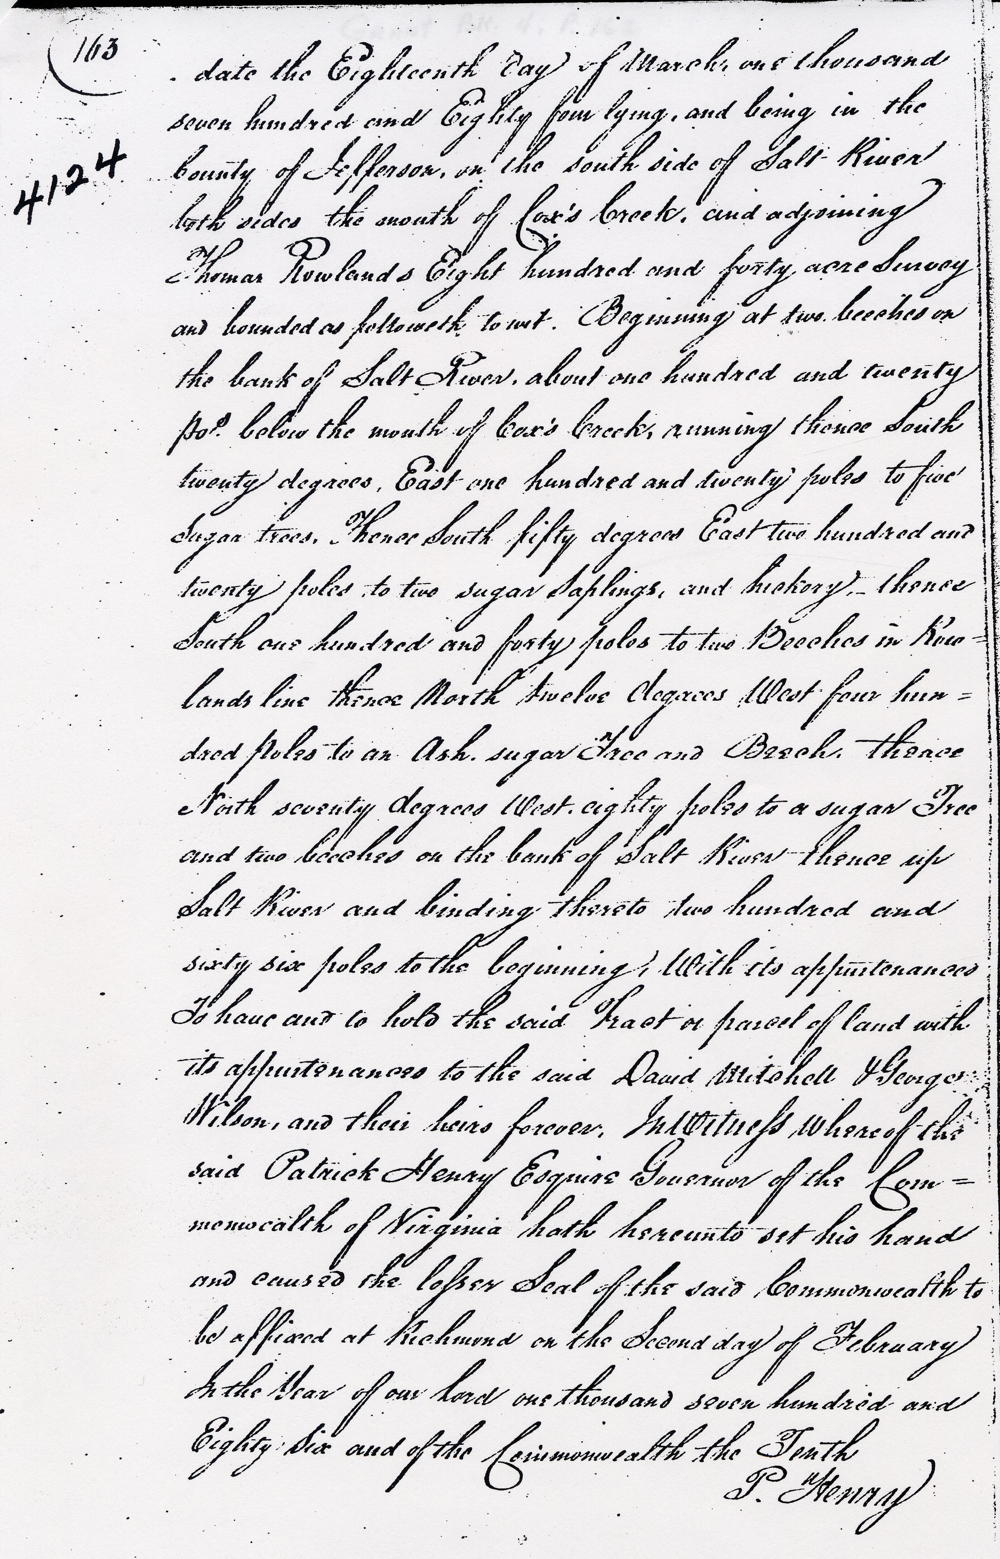 163
4124
date the Eighteenth Day of March, one thousand
seven hundred and Eighty four lying, and being in the
County of Jefferson, on the south side of Salt River
both sides the mouth of Cox's Creek, and adjoining
Thomas Rowlands Eight hundred and forty acre Survey
and bounded as followeth, to wit. Beginning at two beeches on
the bank of Salt River, about one hundred and twenty
pos. below the mouth of Cox's Creek, running thence South
twenty degrees, East one hundred and twenty poles to five
Sugar trees. Thence South fifty degrees East two hundred and
twenty poles to two sugar Saplings, and hickory, - thence
South one hundred and forty poles to two Beeches in Row=
lands line thence North twelve degrees West four hun=
dred poles to an Ash. sugar Tree and Beech. thence
North seventy degrees West. eighty poles to a sugar Tree
and two beeches on the bank of Salt River thence up
Salt River and binding thereto two hundred and
sixty six poles to the beginning, With its appurtenances
To have and to hold the said Tract or parcel of land with
its appurtenances to the said David Mitchell & George
Wilson, and their heirs forever. In Witness Whereof the
said Patrick Henry Esquire Governor of the Com=
monwealth of Virginia hath hereunto set his hand
and caused the lesser Seal of the said Commonwealth to
be affixed at Richmond on the Second day of February
In the Year of our lord one thousand seven hundred and
Eighty Six and of the Commonwealth the Tenth
P. Henry